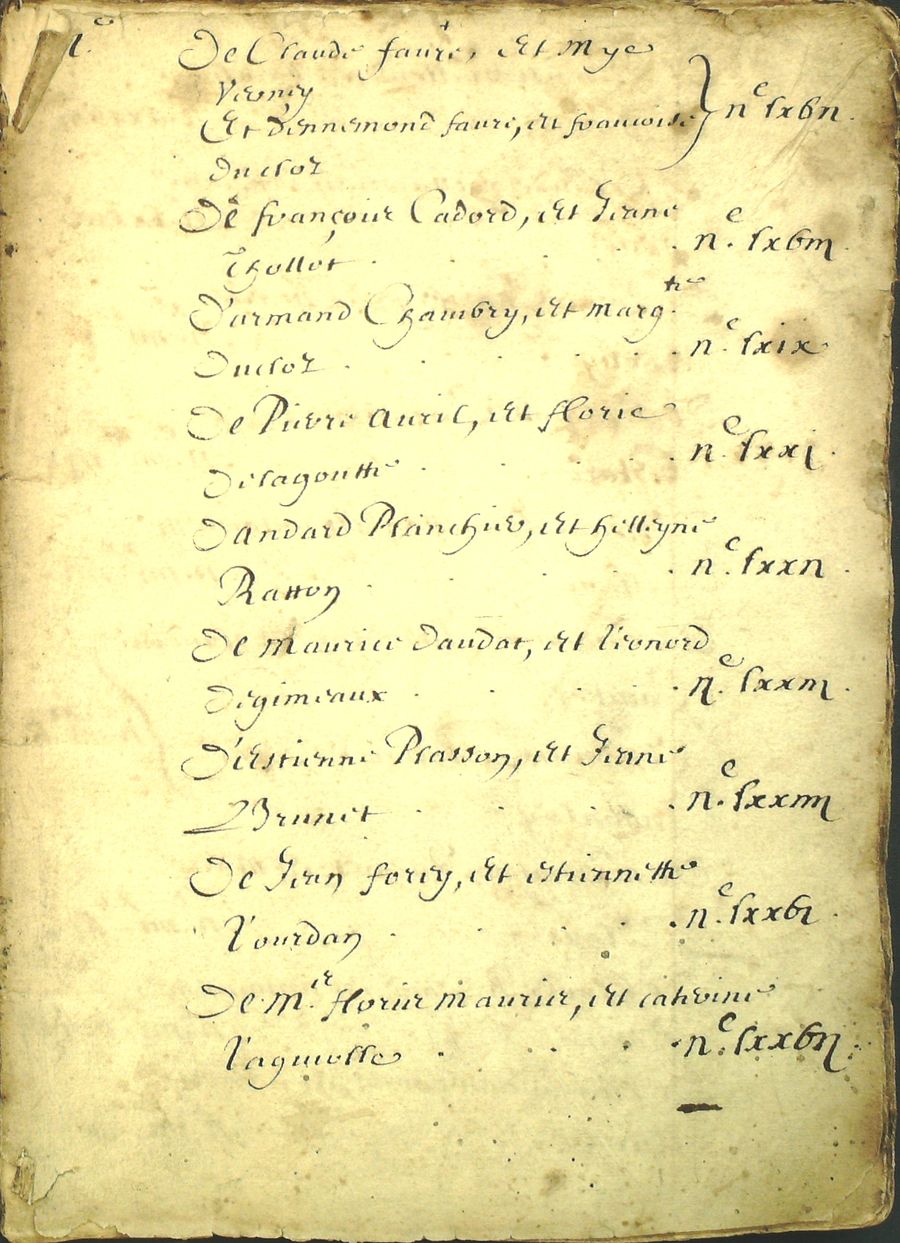 De Claude faure, Et Mye
Verney
Et Dennemond faure, Et francoise } n^e lxbii.
Ducloz
De françois Cadord, Et Jeane
Thollot . . . . n^e. lxbiii.
D'armand Chambry, Et marg^tte.
Ducloz . . . . n^e. lxix
De Pierre Auril, Et florie
Delagoutte . . . . n^e lxxi.
D'andard Planchier, Et helleyne
Ratton . . . . n^e. lxxii.
De Maurice Daudat, Et Leonord
Degimeaux . . . . n^e. lxxiii.
D'Estienne Plasson, Et Jeane
Brunet . . . . n^e. lxxiiii
De Jean forey, Et estiennette
Jourdan . . . . n^e. lxxbi.
De M^re. florie Maurier, Et catherine
. . . . n^e. lxxbii.